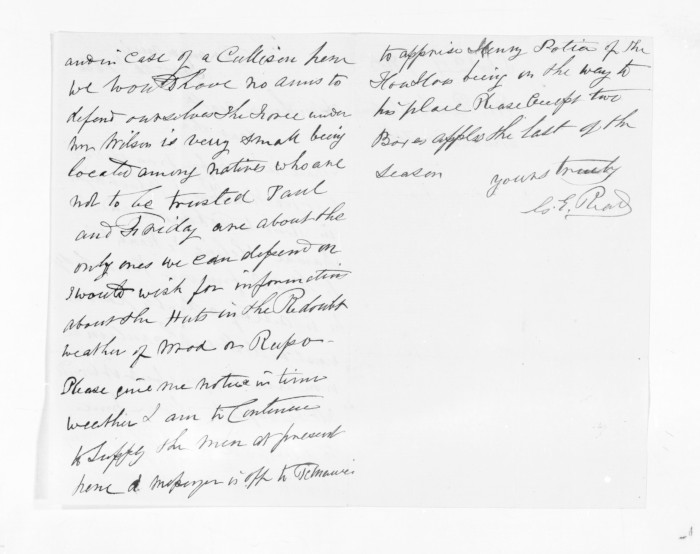 and in case of a Cullison here
we would have no arms to
defend ourselves The Force under
Mr Wilson is very small being
located among natives who are
not to be trusted Paul
and Friday are about the
only ones we can depend on
I would wish for information
about the Huts in the Redoubt
weather of Wood or Raupo -
Please give me notice in time
weether I am to Continue
to Supply the men at present
here a messenger is off to
to apprise Henry Potier of the
Hou Hous being in the way to
his place Please Except two
Boxes apples the last of the
season
yours truely
G. E. Read